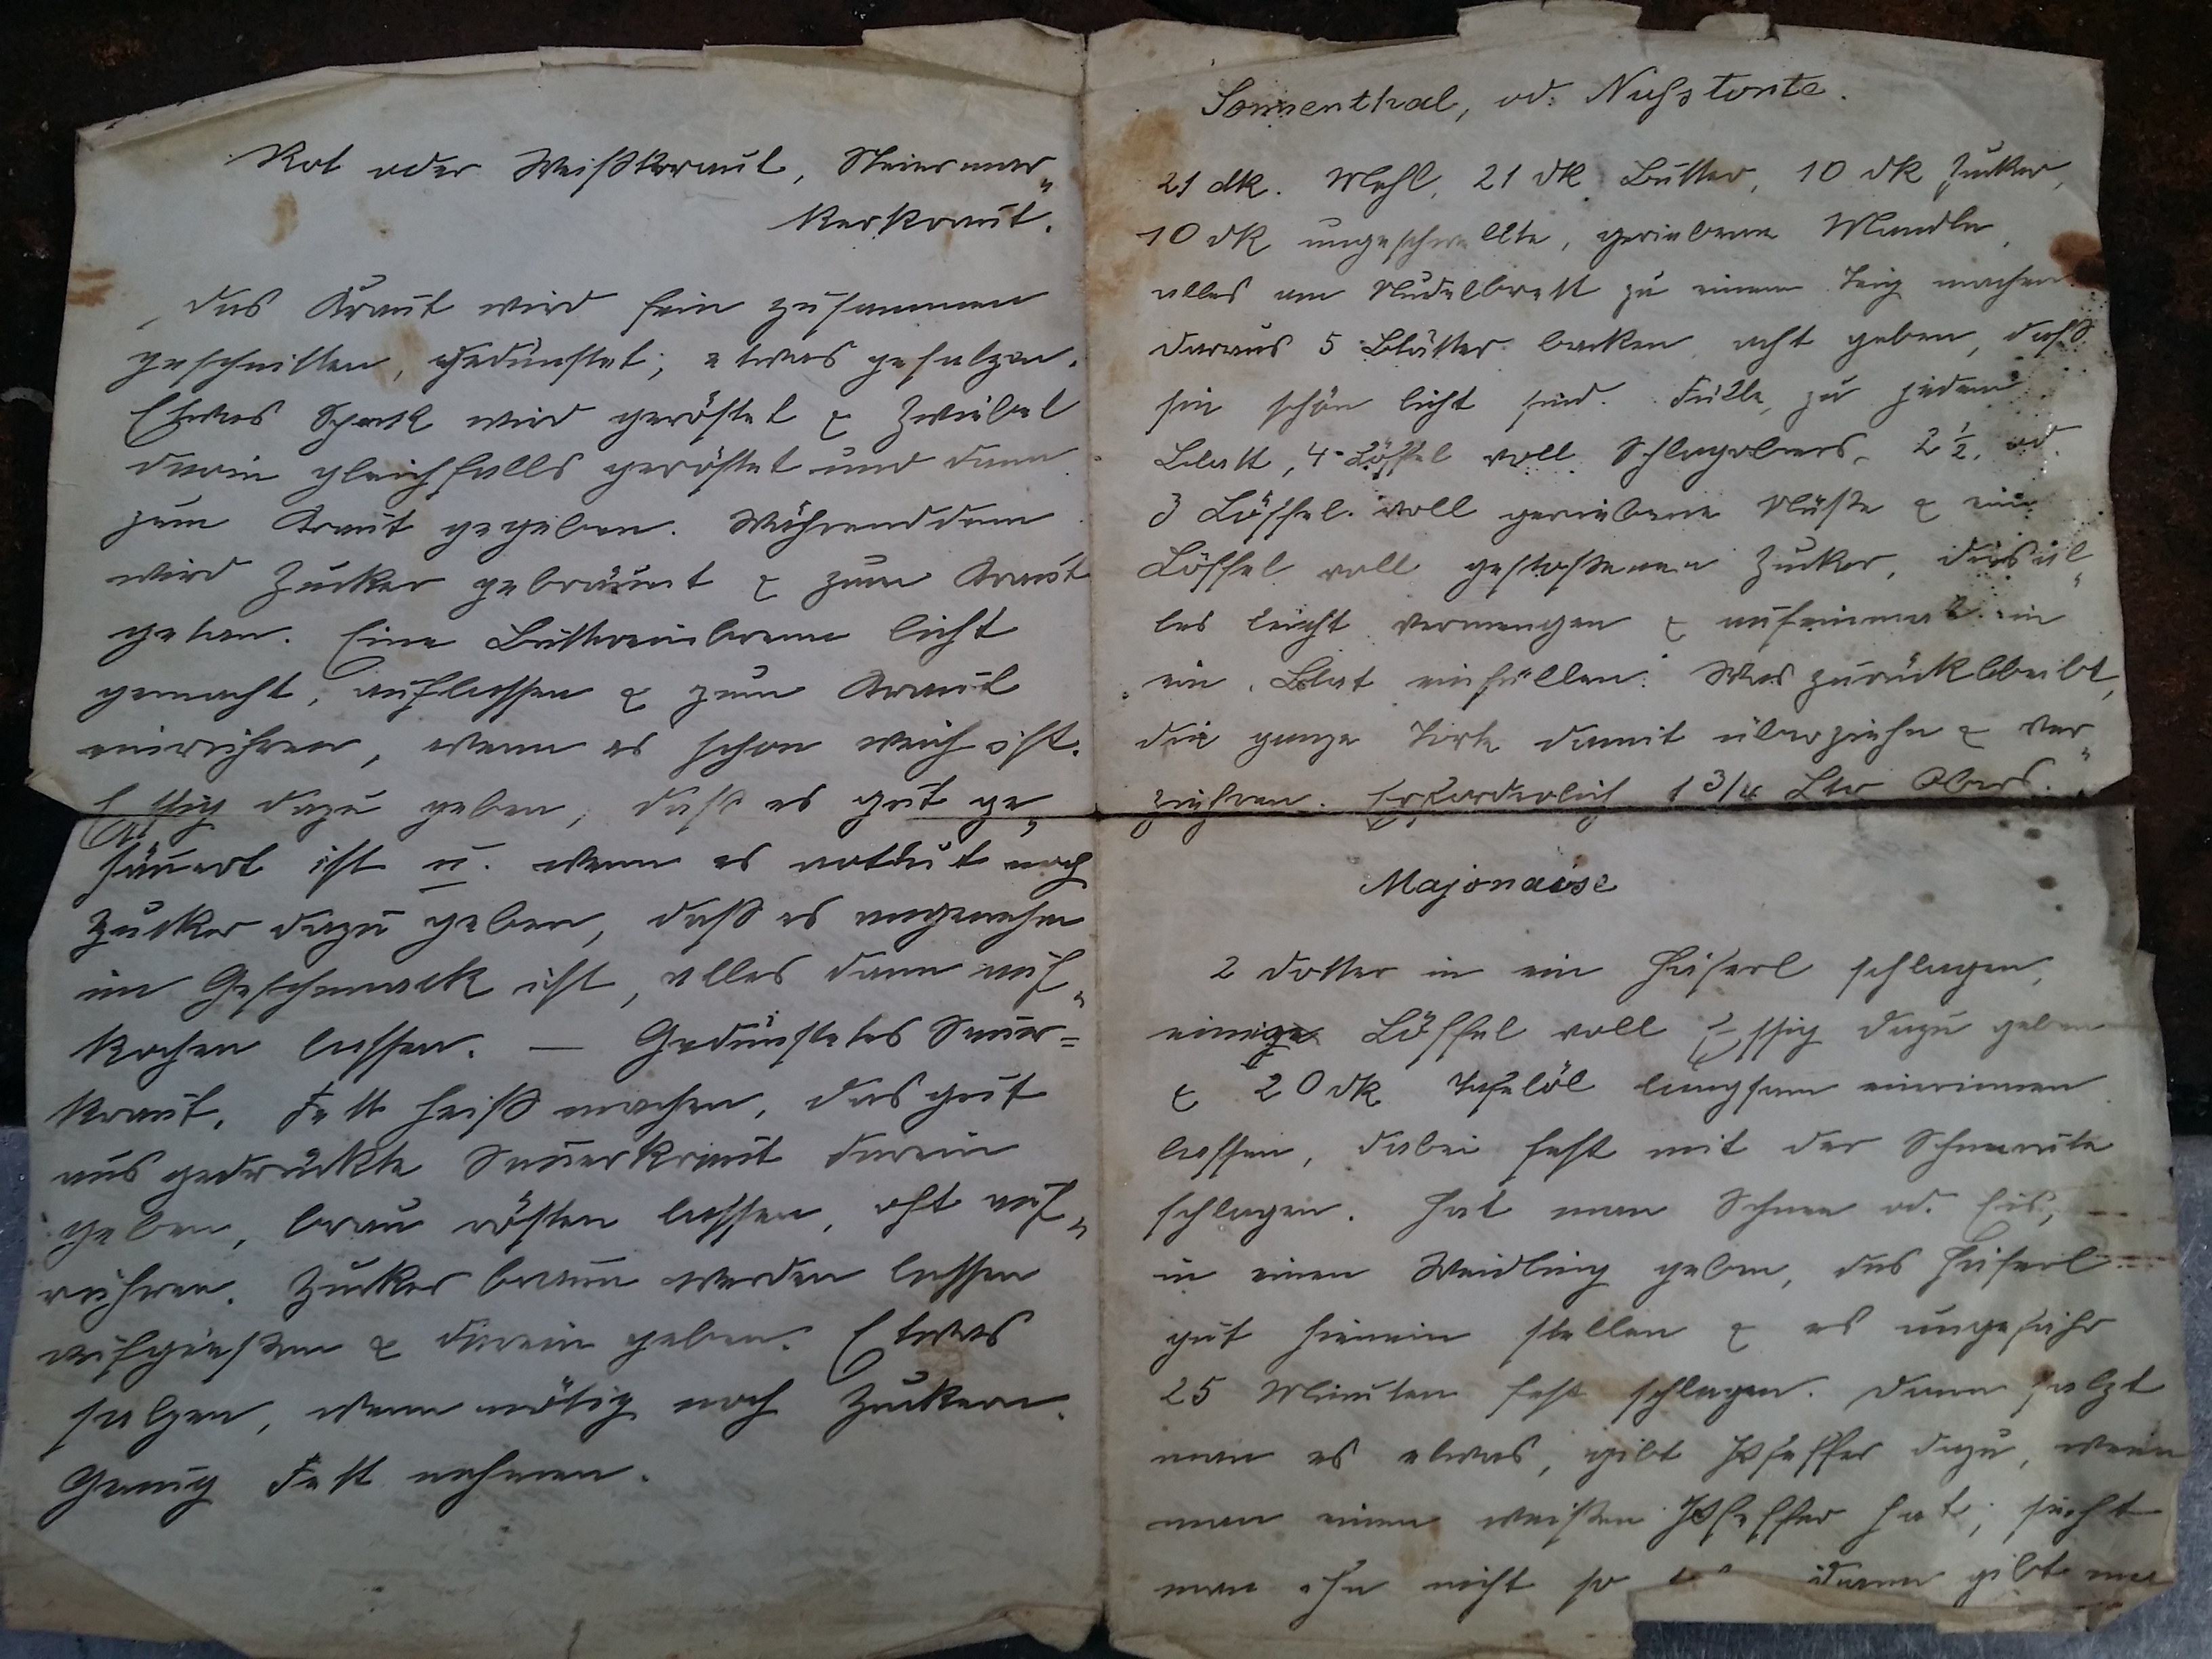 Rot oder Weißkraut, Steiermar„
kerkraut.
Das Kraut wird fein zusammen
geschnitten, gedünstet, etwas gesalzen.
Etwas Speck wird geröstet & Zwiebel
darin gleichfalls geröstet und dann
zum Kraut gegeben. Währenddem
wird Zucker gebräunt & zum Kraut
getan. Eine Buttereinbrenn licht
gemacht, auflassen & zum Kraut
einrühren, wenn es schon weich ist.
Essig dazu geben, daß es gut ge„
säuert ist u. wenn es nottut noch
Zucker dazu geben, daß es angenehm
im Geschmack ist, alles dann auf„
kochen lassen. — Gedünstetes Sauer=
kraut. Fett heiß machen, das gut
ausgedrückte Sauerkraut darein
geben, braun rösten lassen, oft auf„
rühren. Zucker braun werden lassen
aufgießen & darein geben. Etwas
salzen, wenn nötig noch Zuckern.
Genug Fett nehmen.
Sonnenthal, od. Nusstorte.
21 dk. Mehl, 21 dk Butter, 10 dk Zucker,
10 dk ungeschwellte, geriebene Mandln,
alles am Nudelbrett zu einem Teig machen
daraus 5 Blätter backen acht geben, daß
sie schön licht sind. Fülle, zu jedem
Blatt, 4 Löffel voll Schlagobers, 2½ od.
3 Löffel voll geriebene Nüße & ein
Löffel voll gestoßenen Zucker, dies al„
les leicht vermengen & aufeinmal in
ein Blat einfüllen. Was zurückbleibt,
die ganze Torte damit überziehn & ver„
ziehren. Erforderlich 1 3/4 Ltr Obers.
Majonaise
2 Dotter in ein Häferl schlagen,
einige Löffel voll Essig dazu geben
& 20 dk Tafelöl langsam einrinnen
lassen, dabei fest mit der Schneerute
schlagen. Hat man Schnee od. Eis,
in einen Weidling geben, das Häferl
gut hinein stellen & es ungefähr
25 Minuten fest schlagen. Dann salzt
man es etwas, gibt Pfeffer dazu, wenn
man einen weißen Pfeffer hat, sieht
man ihn nicht so dann gibt man